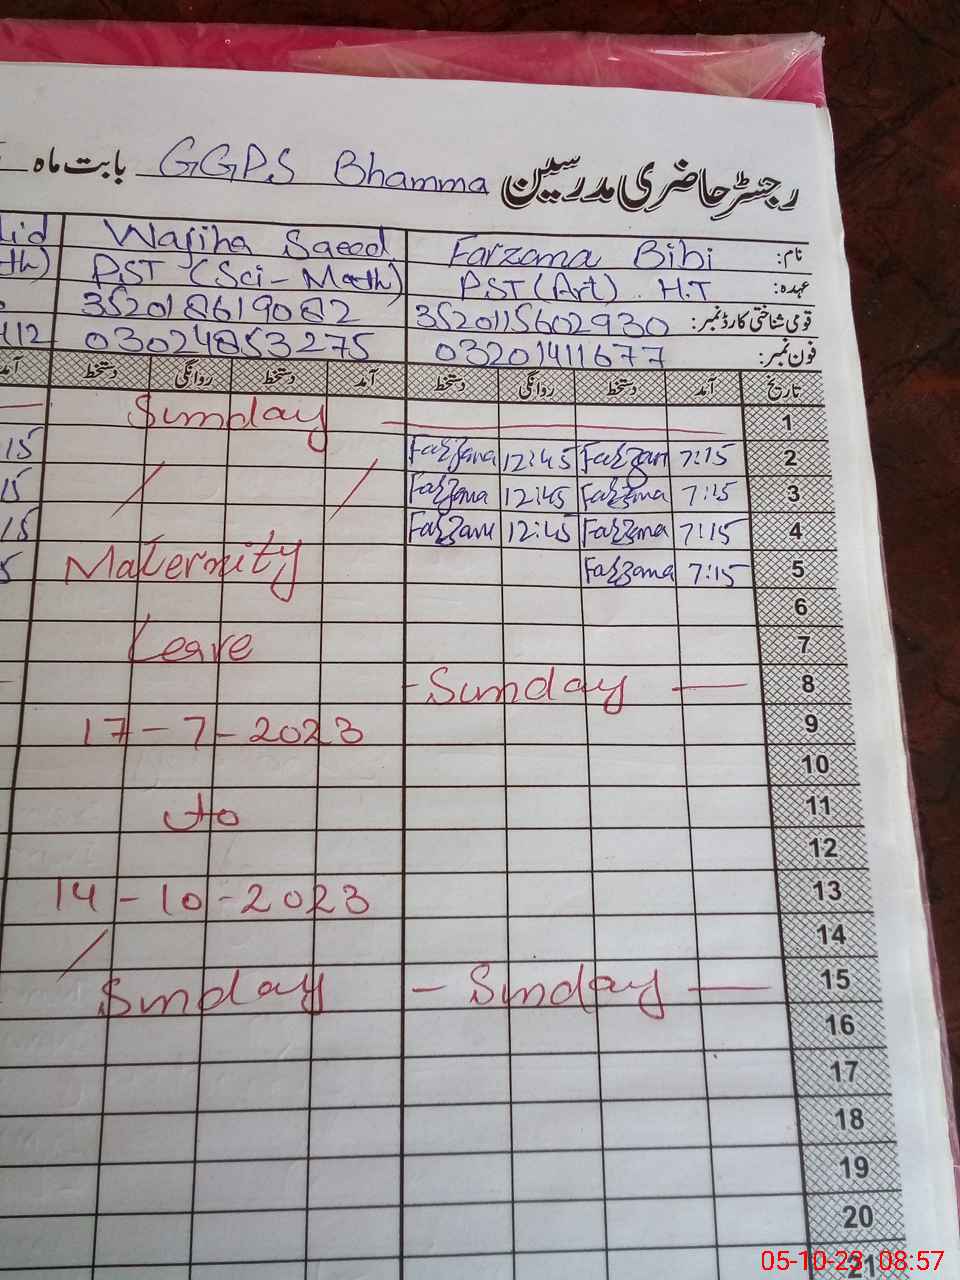 رجسٹر حاضری مدرسین GGPS Bhamma بابت ماہ
نام: Farzana Bibi Wajiha Saeed
عہدہ: PST (Art) H.T PST (Sci-Math)
قومی شناختی کارڈ نمبر: 3520115602930 352018619082
فون نمبر: 03201411677 03024853275
تاریخ آمد دستخط روانگی دستخط آمد دستخط روانگی دستخط
1 Sunday
2 7:15 Farzan 12:45 Farzana 15
3 7:15 Farzana 12:45 Farzana 15
4 7:15 Farzana 12:45 Farzana 15
5 7:15 Farzana Maternity
6
7 Leave
8 Sunday
9 17-7-2023
10
11 to
12
13 14-10-2023
14
15 Sunday Sunday
16
17
18
19
20
21
05-10-23 08:57